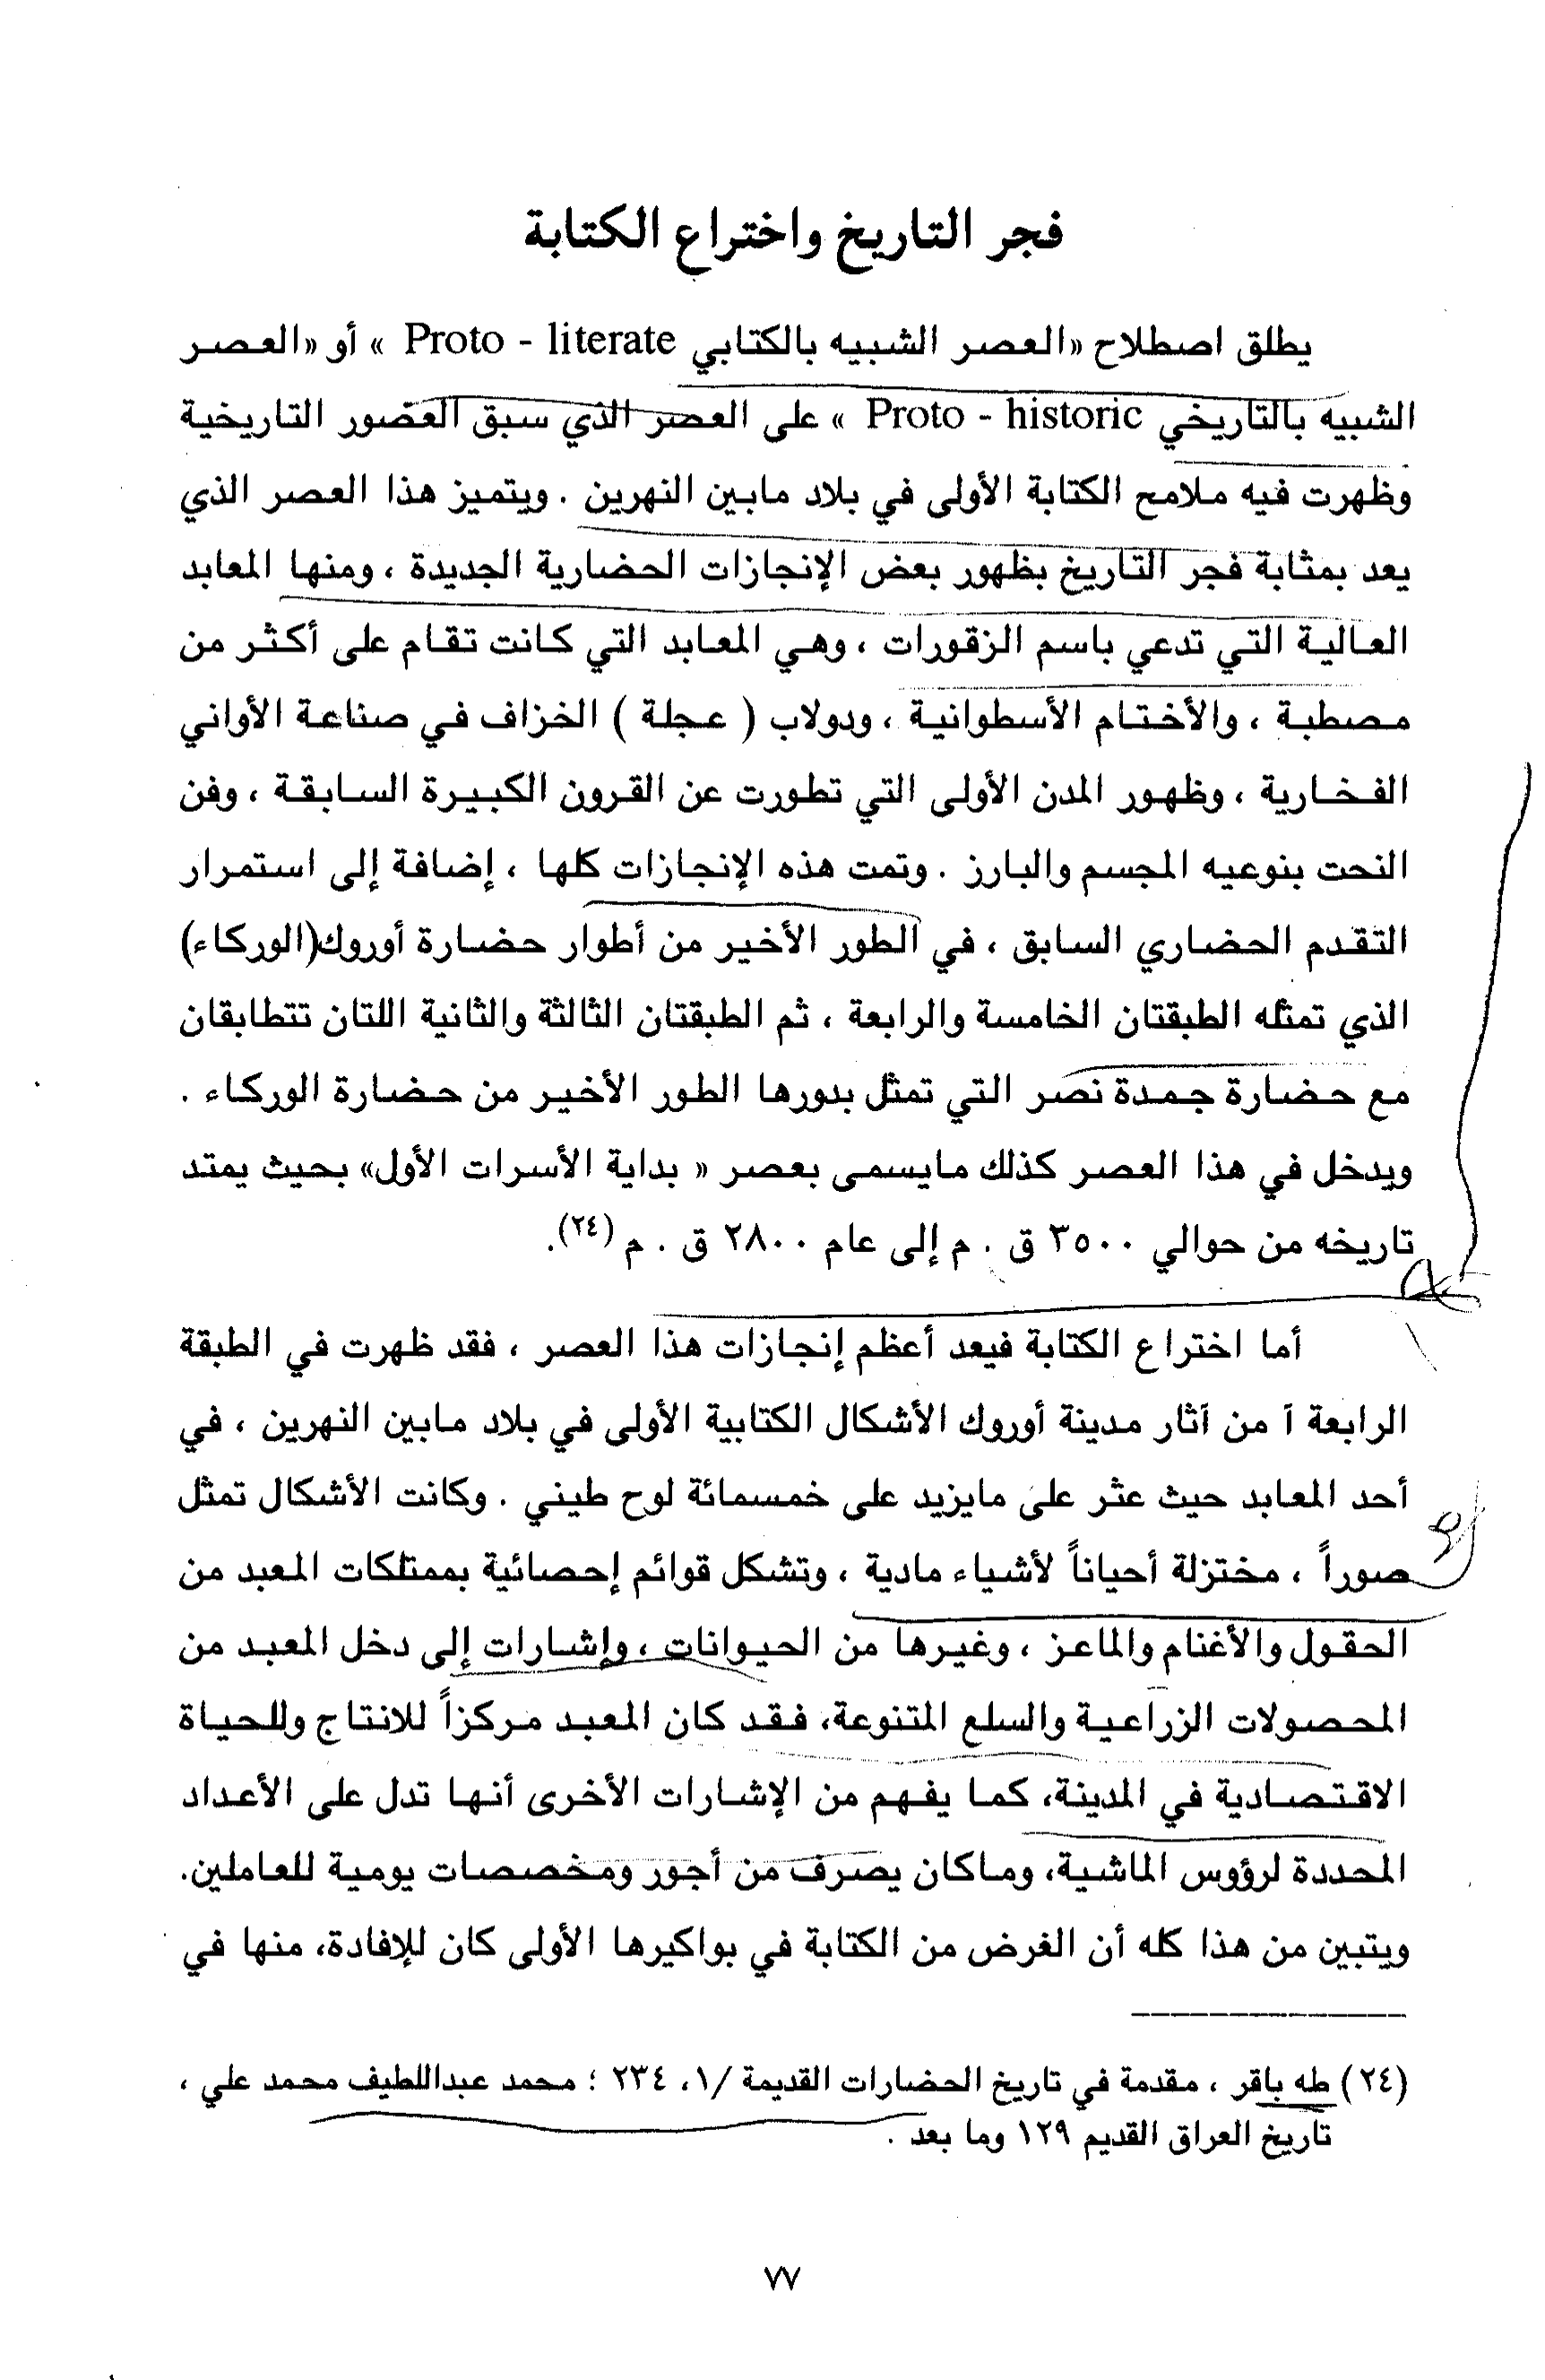 فجر التاريخ واختراع الكتابة
يطلق اصطلاح «العصر الشبيه بالكتابي Proto - literate » أو «العصر
الشبيه بالتاريخي Proto - historic » على العصر الذي سبق العصور التاريخية
وظهرت فيه ملامح الكتابة الأولى في بلاد مابين النهرين . ويتميز هذا العصر الذي
يعد بمثابة فجر التاريخ بظهور بعض الإنجازات الحضارية الجديدة ، ومنها المعابد
العالية التي تدعي باسم الزقورات ، وهي المعابد التي كانت تقام على أكثر من
مصطبة ، والأختام الأسطوانية ، ودولاب ( عجلة ) الخزاف في صناعة الأواني
الفخارية ، وظهور المدن الأولى التي تطورت عن القرون الكبيرة السابقة ، وفن
النحت بنوعيه المجسم والبارز . وتمت هذه الإنجازات كلها ، إضافة إلى استمرار
التقدم الحضاري السابق ، في الطور الأخير من أطوار حضارة أوروك(الوركاء)
الذي تمثله الطبقتان الخامسة والرابعة ، ثم الطبقتان الثالثة والثانية اللتان تتطابقان
مع حضارة جمدة نصر التي تمثل بدورها الطور الأخير من حضارة الوركاء .
ويدخل في هذا العصر كذلك مايسمى بعصر « بداية الأسرات الأول» بحيث يمتد
تاريخه من حوالي ٣٥٠٠ ق . م إلى عام ٢٨٠٠ ق . م (٢٤).
أما اختراع الكتابة فيعد أعظم إنجازات هذا العصر ، فقد ظهرت في الطبقة
الرابعة آ من آثار مدينة أوروك الأشكال الكتابية الأولى في بلاد مابين النهرين ، في
أحد المعابد حيث عثر على مايزيد على خمسمائة لوح طيني . وكانت الأشكال تمثل
صوراً ، مختزلة أحياناً لأشياء مادية ، وتشكل قوائم إحصائية بممتلكات المعبد من
الحقول والأغنام والماعز ، وغيرها من الحيوانات ، وإشارات إلى دخل المعبد من
المحصولات الزراعية والسلع المتنوعة، فقد كان المعبد مركزاً للانتاج وللحياة
الاقتصادية في المدينة، كما يفهم من الإشارات الأخرى أنها تدل على الأعداد
المحددة لرؤوس الماشية، وماكان يصرف من أجور ومخصصات يومية للعاملين.
ويتبين من هذا كله أن الغرض من الكتابة في بواكيرها الأولى كان للإفادة، منها في
(٢٤) طه باقر ، مقدمة في تاريخ الحضارات القديمة /١، ٢٣٤ ؛ محمد عبداللطيف محمد علي ،
تاريخ العراق القديم ١٢٩ وما بعد .
٧٧